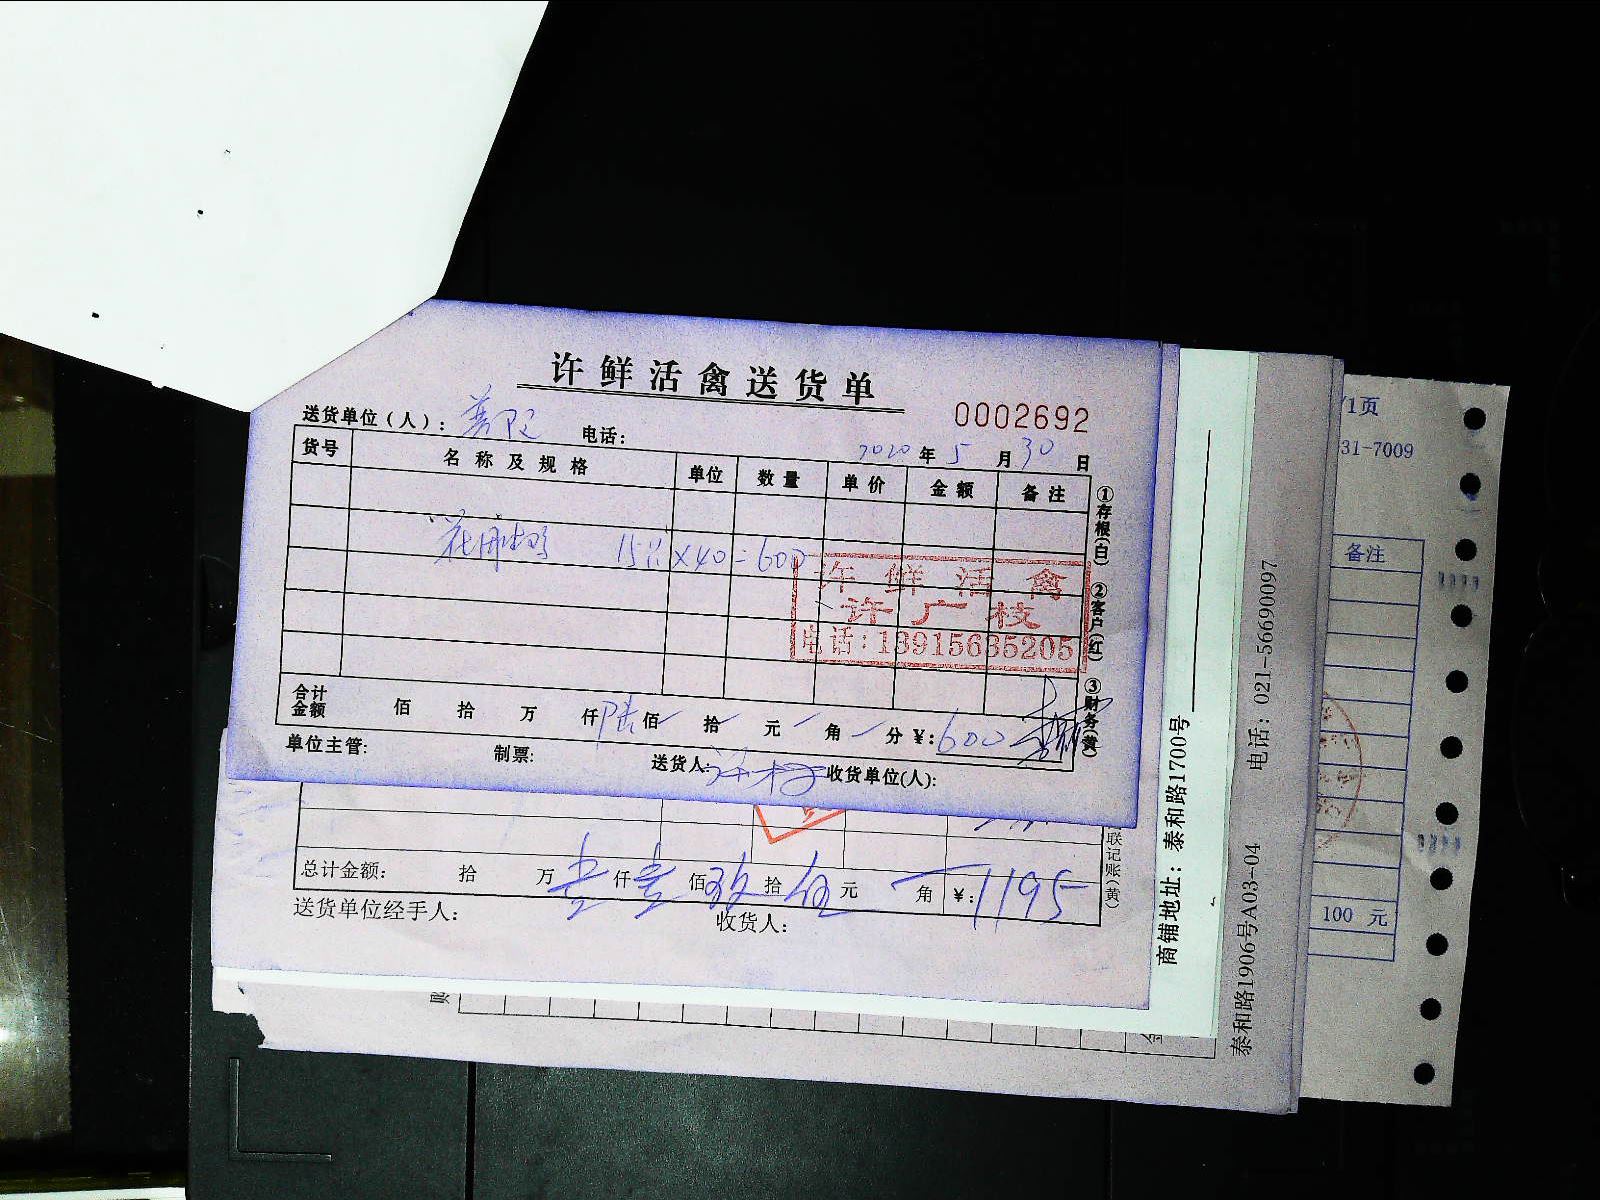 许鲜活禽送货单
0002692
送货单位（人）： 电话：
2020年5月30日
货号 名称及规格 单位 数量 单价 金额 备注
15只×40=600
许鲜活禽
许广枝
电话：13915635205
①存根(白) ②客户(红) ③财务(黄)
合计金额 佰 拾 万 仟陆佰 拾 元 角 分 ¥：600
单位主管： 制票： 送货人： 收货单位(人)：
联记账(黄)
总计金额： 拾 万壹仟壹佰玖拾伍元 角 ¥：1195
送货单位经手人： 收货人：
商铺地址：泰和路1700号
泰和路1906号A03-04 电话：021-56690097
/1页
31-7009
备注
100 元